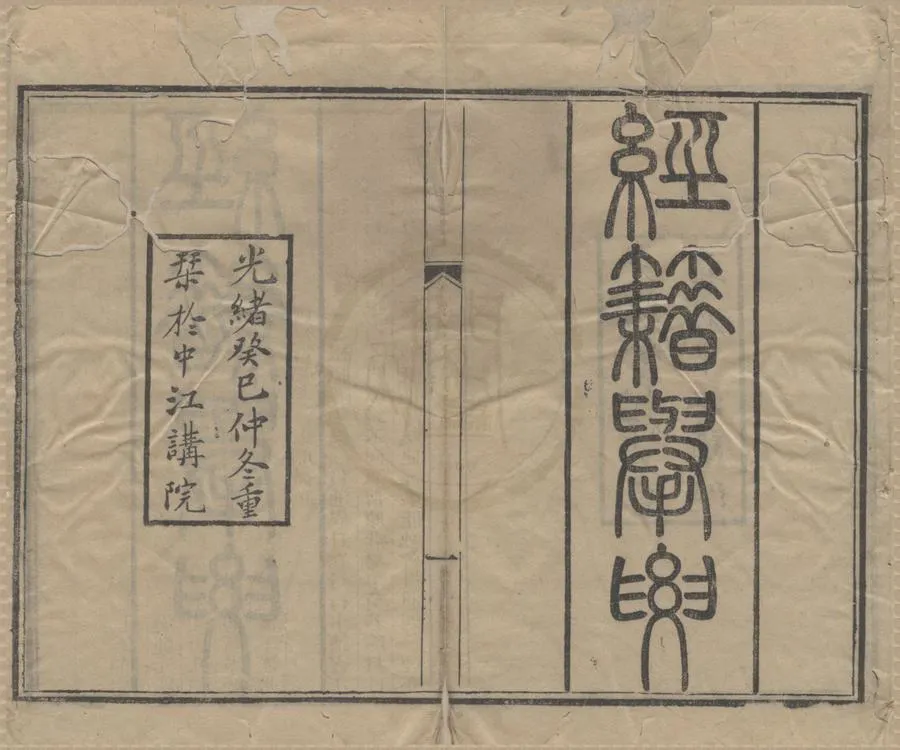 經籍舉要
光緒癸巳仲冬重
栞於中江講院